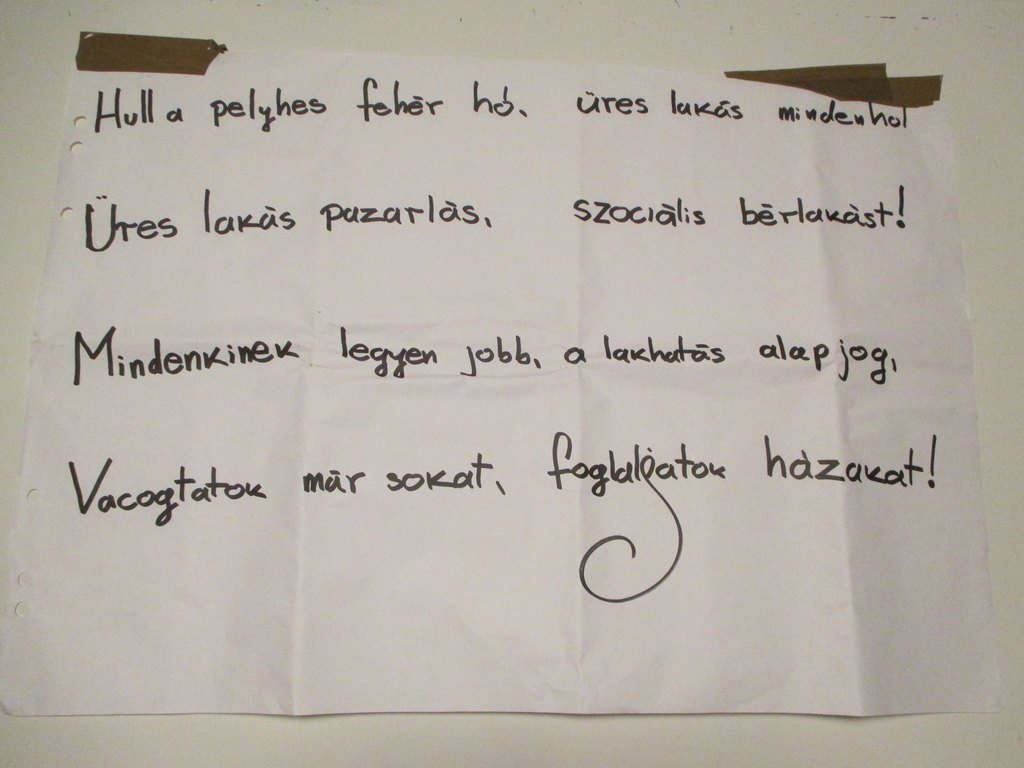 Hull a pelyhes fehér hó, üres lakás mindenhol
Üres lakás pazarlás, szociális bérlakást!
Mindenkinek legyen jobb, a lakhatás alap jog,
Vacogtatok már sokat, foglaljatok házakat!